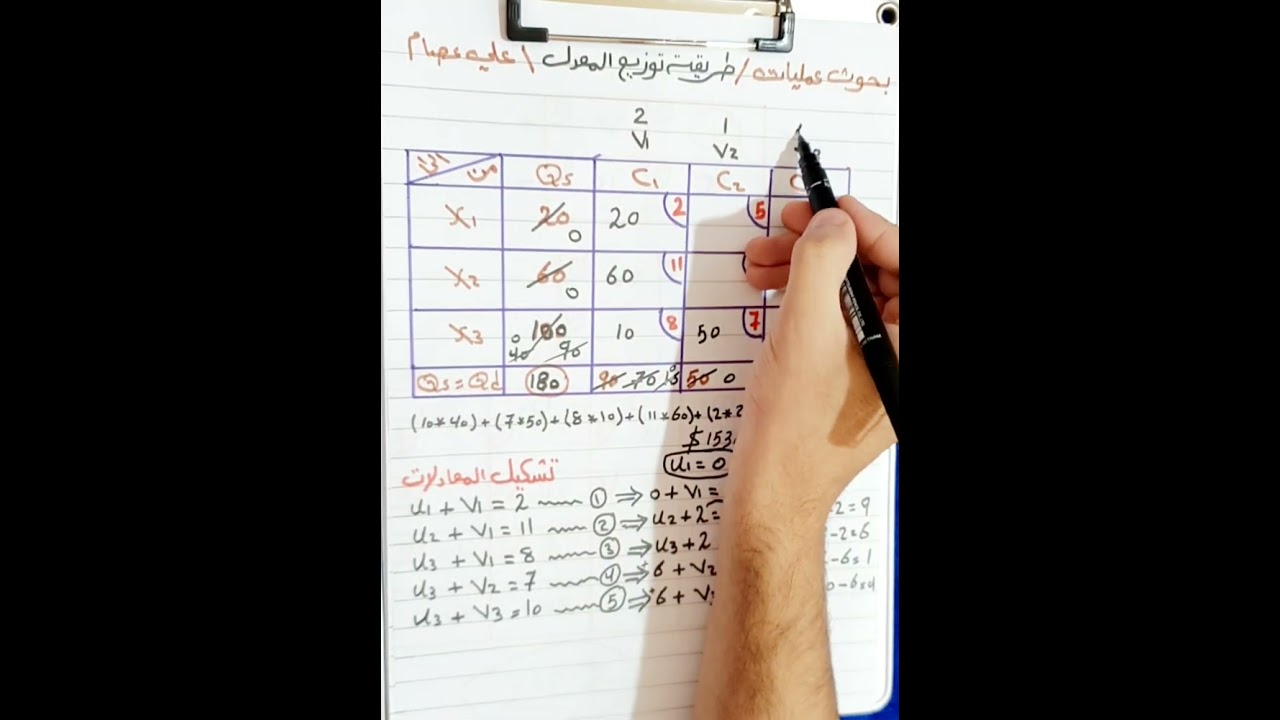 بحوث عمليات / طريقة توزيع المعدل \ علي عصام
2 1
V1 V2
الى من Qs C1 C2 C
X1 20 0 20 2 5
X2 60 0 60 11
X3 100 90 40 0 10 8 50 7
Qs = Qd 180 90 70 10 0 50 0
(10*40) + (7*50) + (8*10) + (11*60) + (2*2
$ 153
u1 = 0
تشكيل المعادلات
u1 + V1 = 2 ① ⇒ 0 + V1 =
u2 + V1 = 11 ② ⇒ u2 + 2 = -2 = 9
u3 + V1 = 8 ③ ⇒ u3 + 2 -2 = 6
u3 + V2 = 7 ④ ⇒ 6 + V2 -6 = 1
u3 + V3 = 10 ⑤ ⇒ 6 + V 0 - 6 = 4